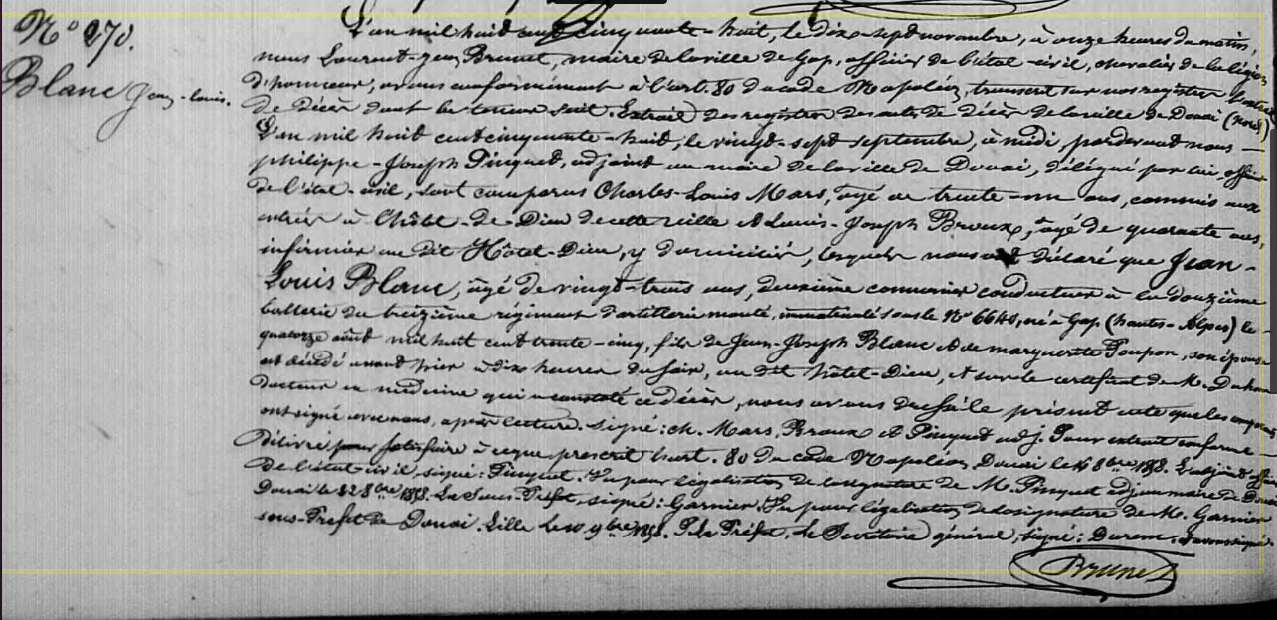 N° 270.
Blanc Jean-Louis.
L'an mil huit cent cinquante-huit, le dix-sept novembre, à onze heures du matin,
nous Laurent-Jean Brunet, maire de la ville de Gap, officier de l'état-civil, chevalier de la légion
d'honneur, avons conformément à l'art. 80 du code Napoléon, transcrit sur nos registres l'extrait
de décès dont la teneur suit. Extrait des registres des actes de décès de la ville de Douai (Nord)
L'an mil huit cent cinquante-huit, le vingt-sept septembre, à midi, pardevant nous
philippe-Joseph Pinquet, adjoint au maire de la ville de Douai, délégué par lui, officier
de l'état-civil, sont comparus Charles-Louis Mars, âgé de trente-un ans, commis aux
entrées à l'hôtel-de-Dieu de cette ville et Louis-Joseph Broux, âgé de quarante ans,
infirmier au dit Hôtel-Dieu, y domicilié, lesquels nous ont déclaré que Jean-
Louis Blanc, âgé de vingt-trois ans, deuxième cannonier conducteur à la douzième
batterie du treizième régiment d'artillerie monté, immatriculé sous le N° 6640, né à Gap (hautes-Alpes) le
quatorze août mil huit cent trente-cinq, fils de Jean-Joseph Blanc et de marguerite Poupon, son épouse
est décédé avant hier à dix heures du soir, au dit hôtel-Dieu, et sur le certificat de M.
Docteur en médecine qui a constaté ce décès, nous avons dressé le présent acte que les comparans
ont signé avec nous, après lecture. signé: ch. Mars, Broux et Pinquet adj. Pour extrait conforme
délivré pour satisfaire à ce que prescrit l'art. 80 du code Napoléon, Douai le 8bre 1858. L'adjoint officier
de l'état-civil, signé: Pinquet. Vu pour légalisation de la signature de M. Pinquet adj. au maire de Douai
Douai le 8bre 1858. Le Sous-Préfet, signé: Garnier. Vu pour légalisation de la signature de M. Garnier
sous-Préfet de Douai. Lille le 10 9bre 1858. P. le Préfet. le Secrétaire général, signé: avons signé.
Brunet